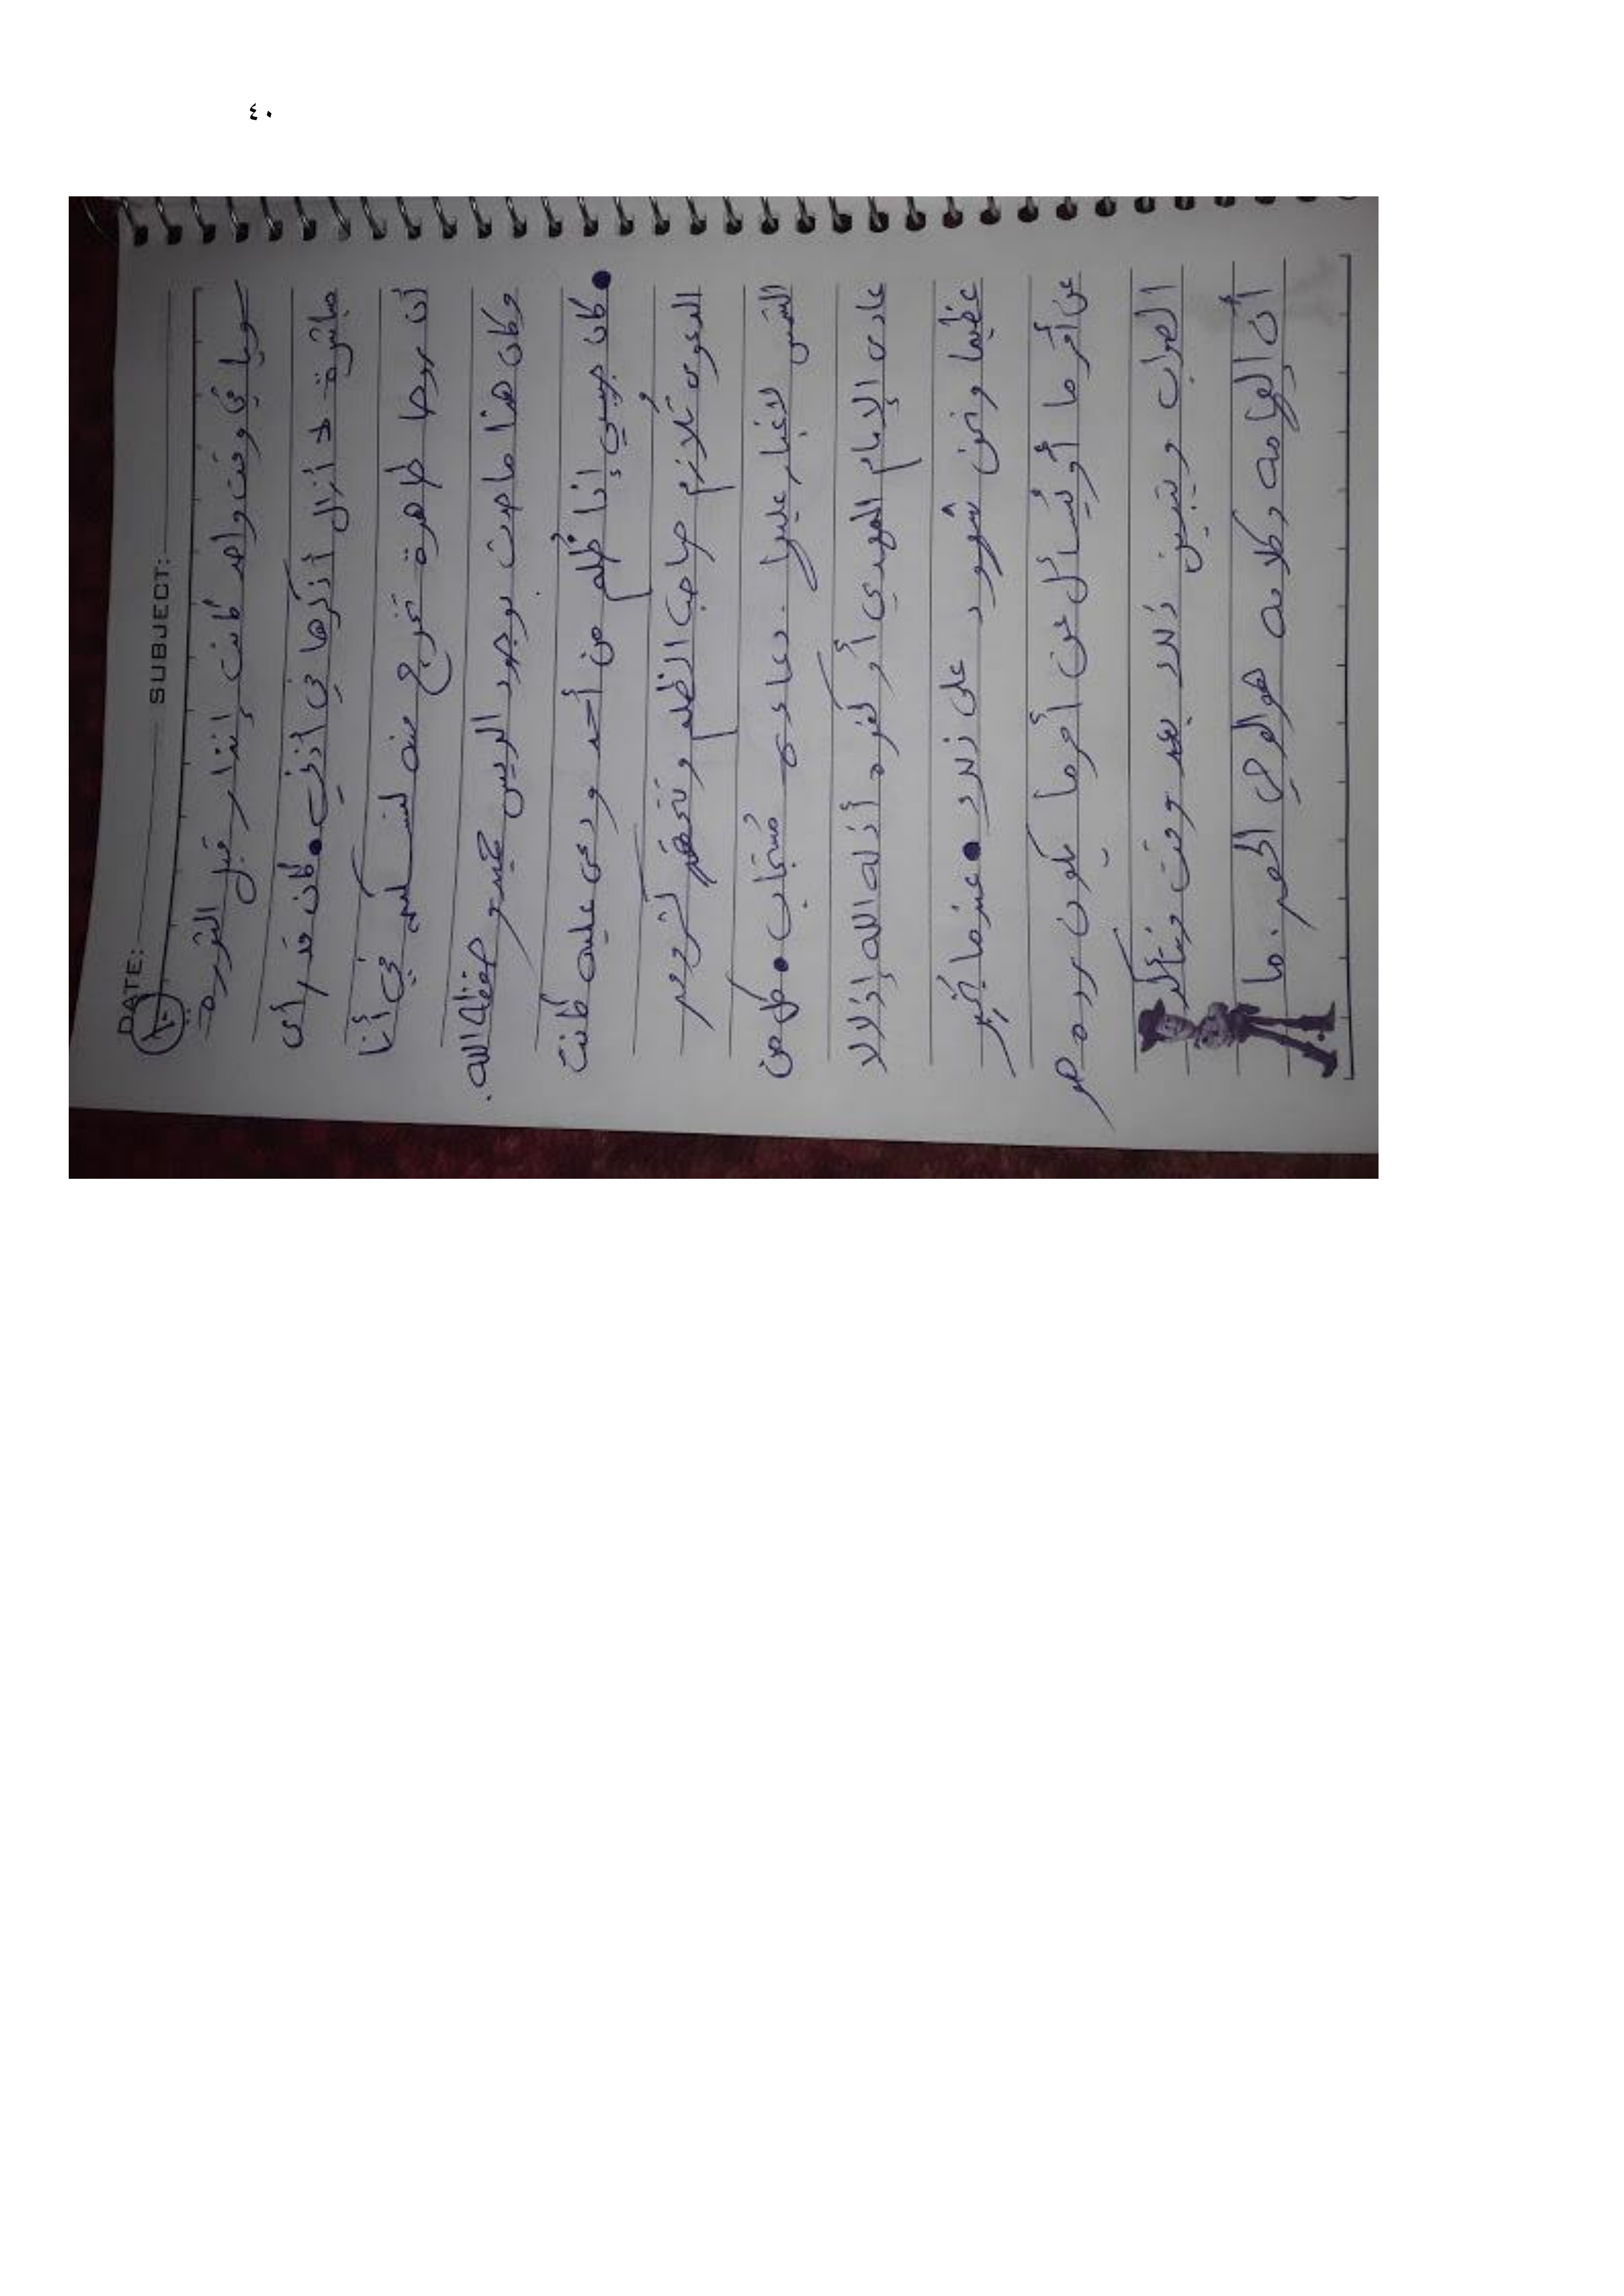 ٤٠
DATE: SUBJECT:
٨٠
سويا في وقت واحد كانت إنذار قبل الثورة
مباشرة لا أزال أذكرها في أذني • كان قد رأى
أن روحا طاهرة تخرج منه لتسكن في أنا
وكان هذا ما صوت بوجود الريس حفظه الله.
• كان حبيبي إذا ظُلم من أحد ودعى عليه كانت
الدعوى تُلازم صاحب الظلم وتَظهر
الشمس لاغبار عليها. دعاءه مُستجاب • كل من
عادى الإمام المهدي أو كفره أذله الله إذلالا
عظيما ونحن شهود على ذلك • عندما يُخبر
عن أمر ما أو يُسأل عن أمر ما يكون رده هو
الصواب ويتبين ذلك بعد وقت ونتأكد
أن إلهامه وكلامه هو الوحي المحض. ما